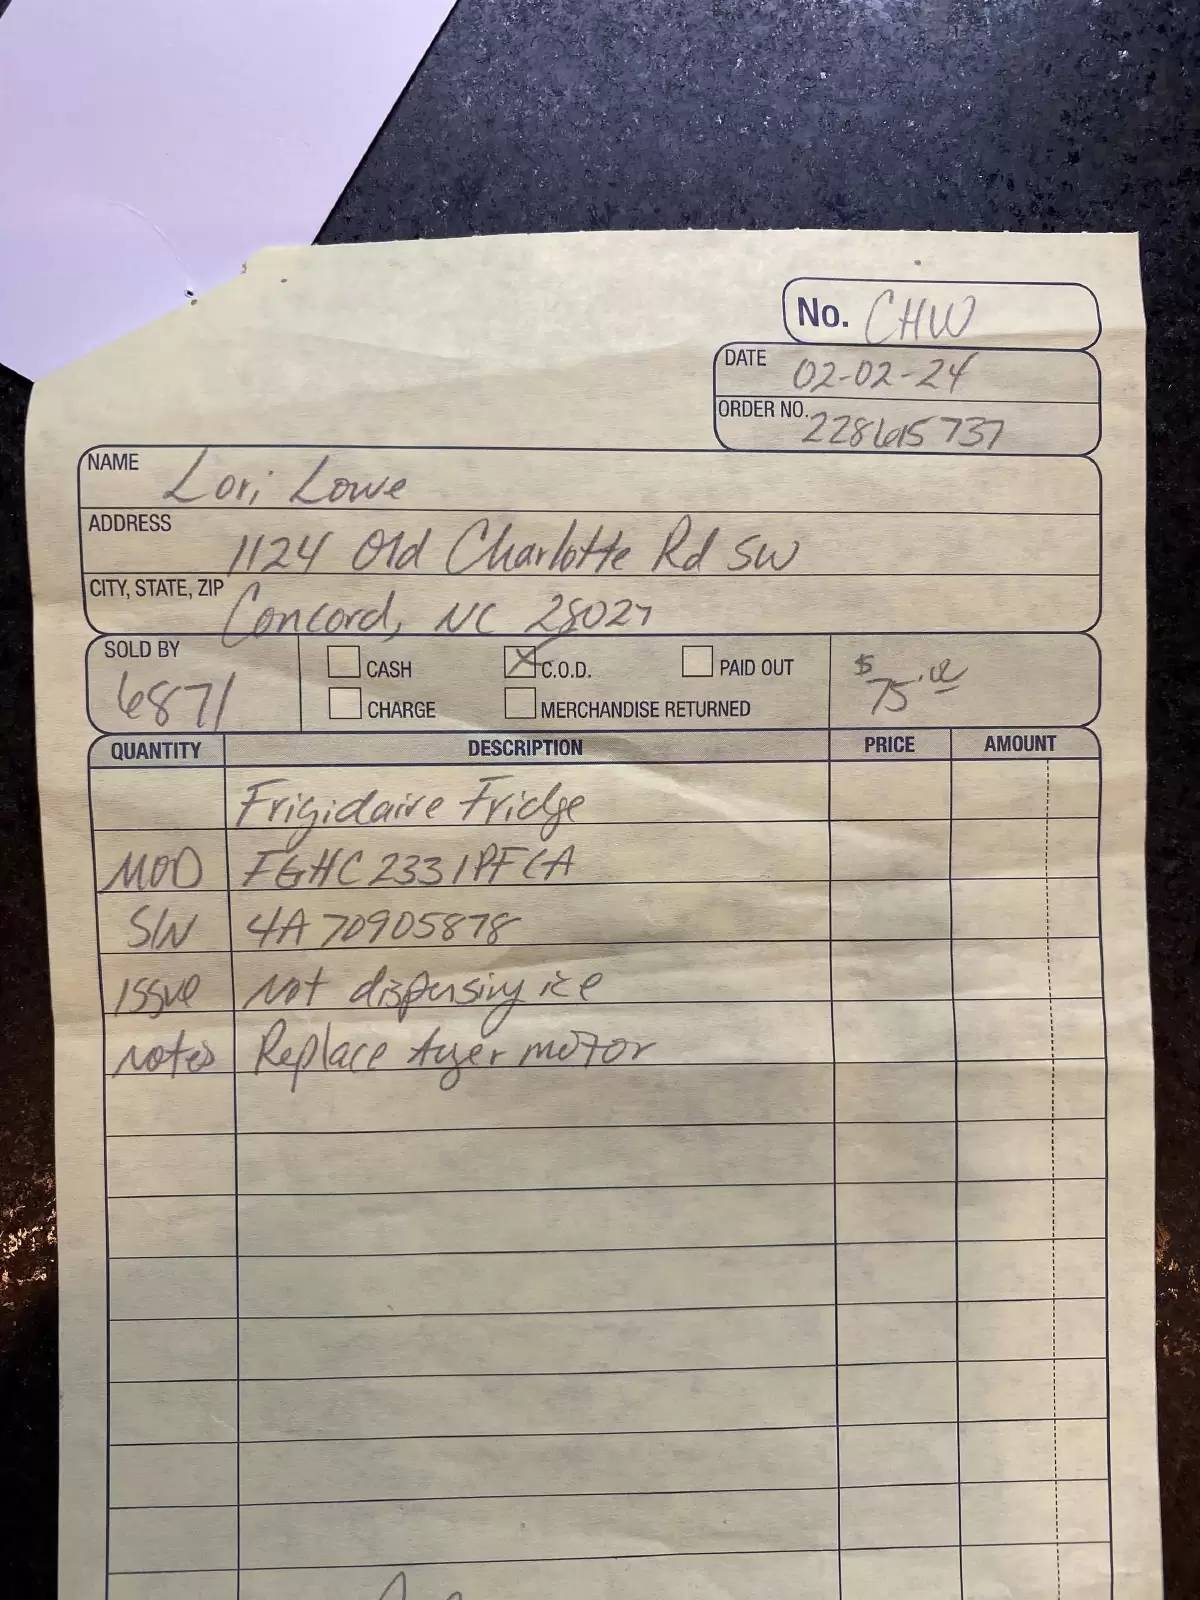 No. CHW
DATE 02-02-24
ORDER NO. 228615737
NAME Lori Lowe
ADDRESS 1124 Old Charlotte Rd SW
CITY, STATE, ZIP Concord, NC 28027
SOLD BY 6871
CASH
X C.O.D.
PAID OUT
CHARGE
MERCHANDISE RETURNED
$75.00
QUANTITY DESCRIPTION PRICE AMOUNT
Frigidaire Fridge
MOD FGHC2331PFCA
S/N 4A70905878
Issue Not dispensing ice
Notes Replace Auger motor